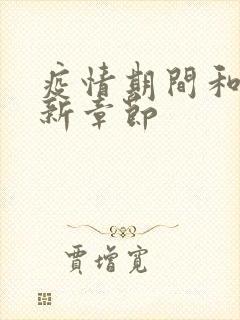 疫情期間和
新章節
賈增寬